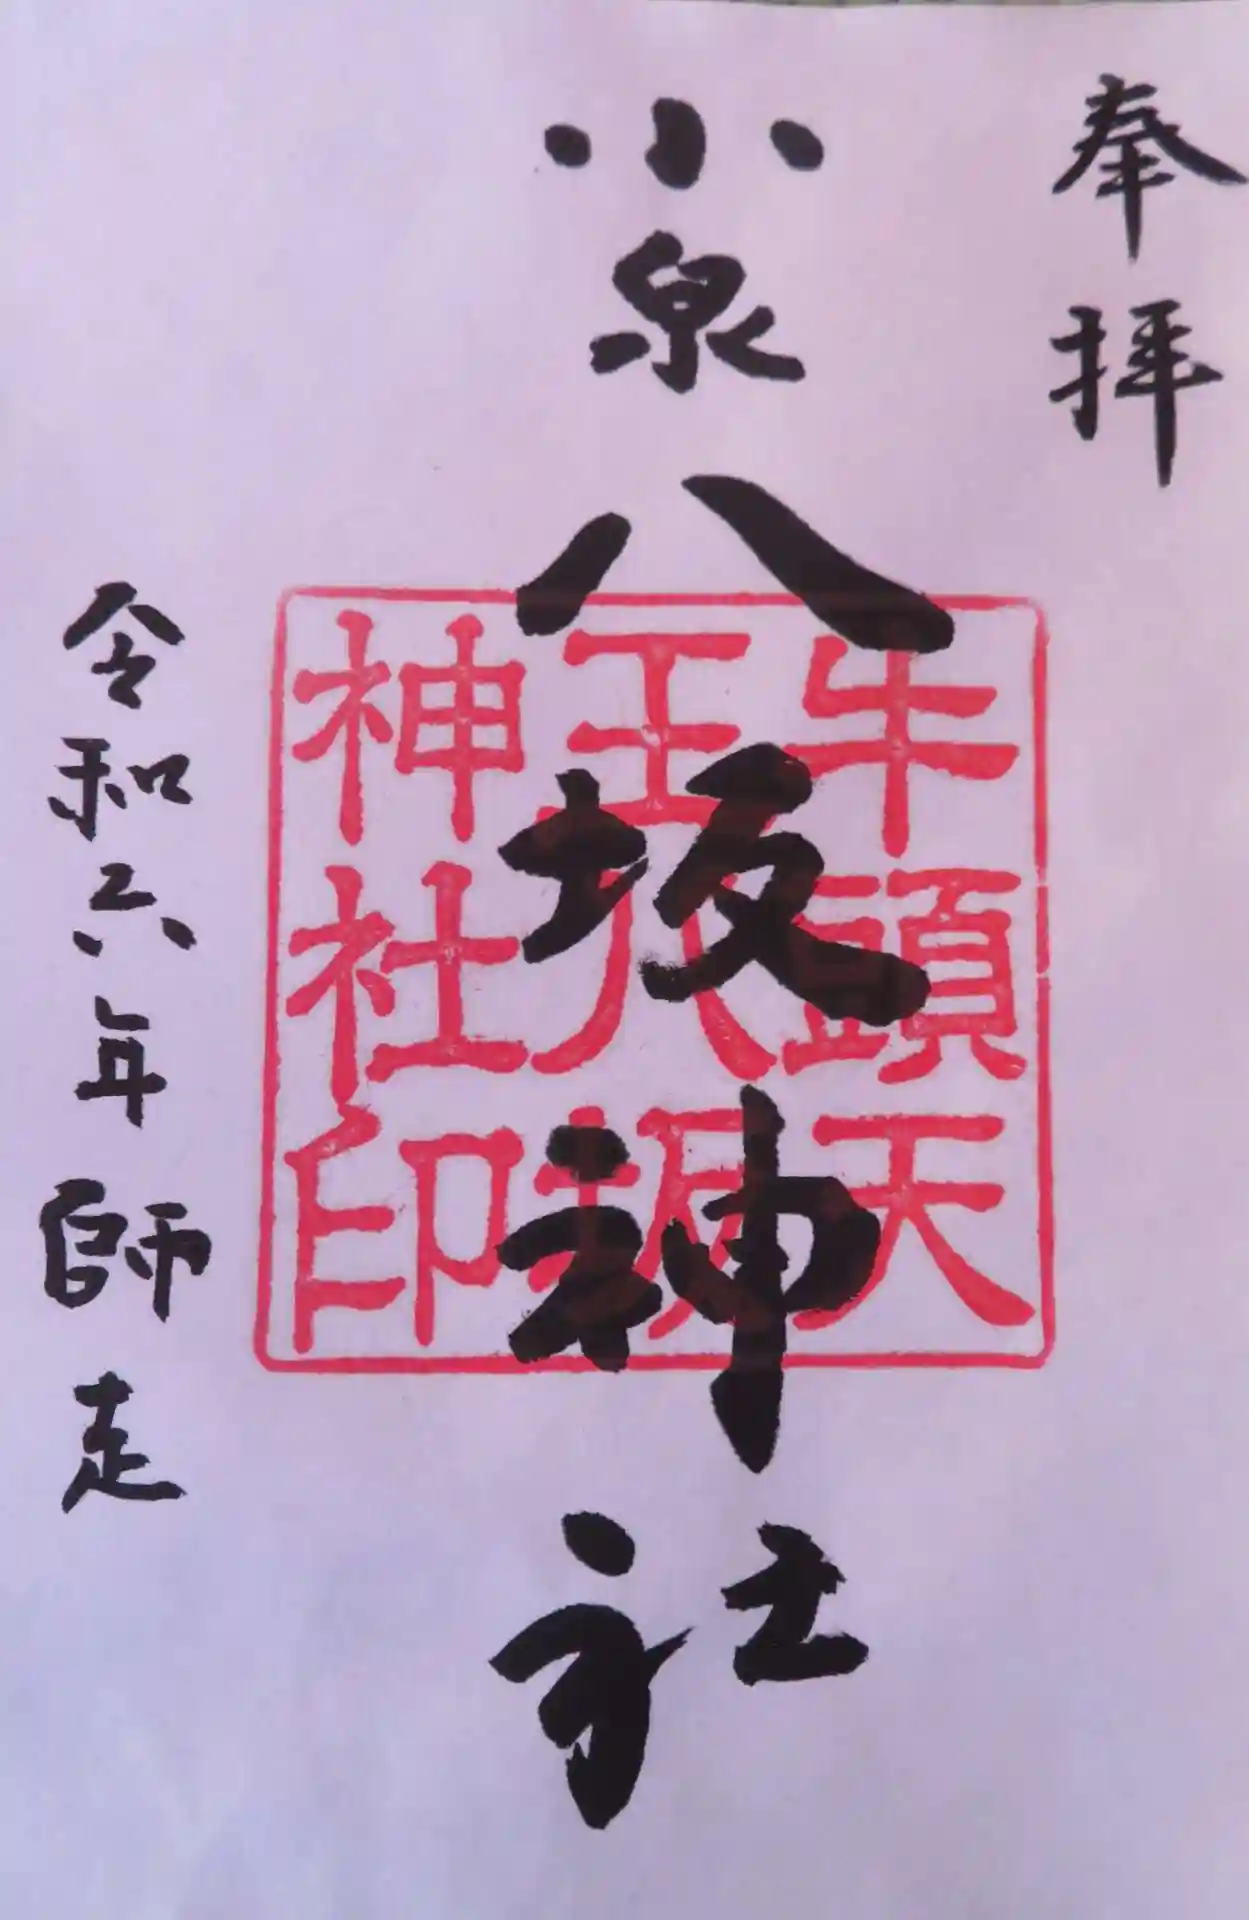 奉拝
小泉八坂神社
牛頭天
王八坂
神社印
令和六年師走